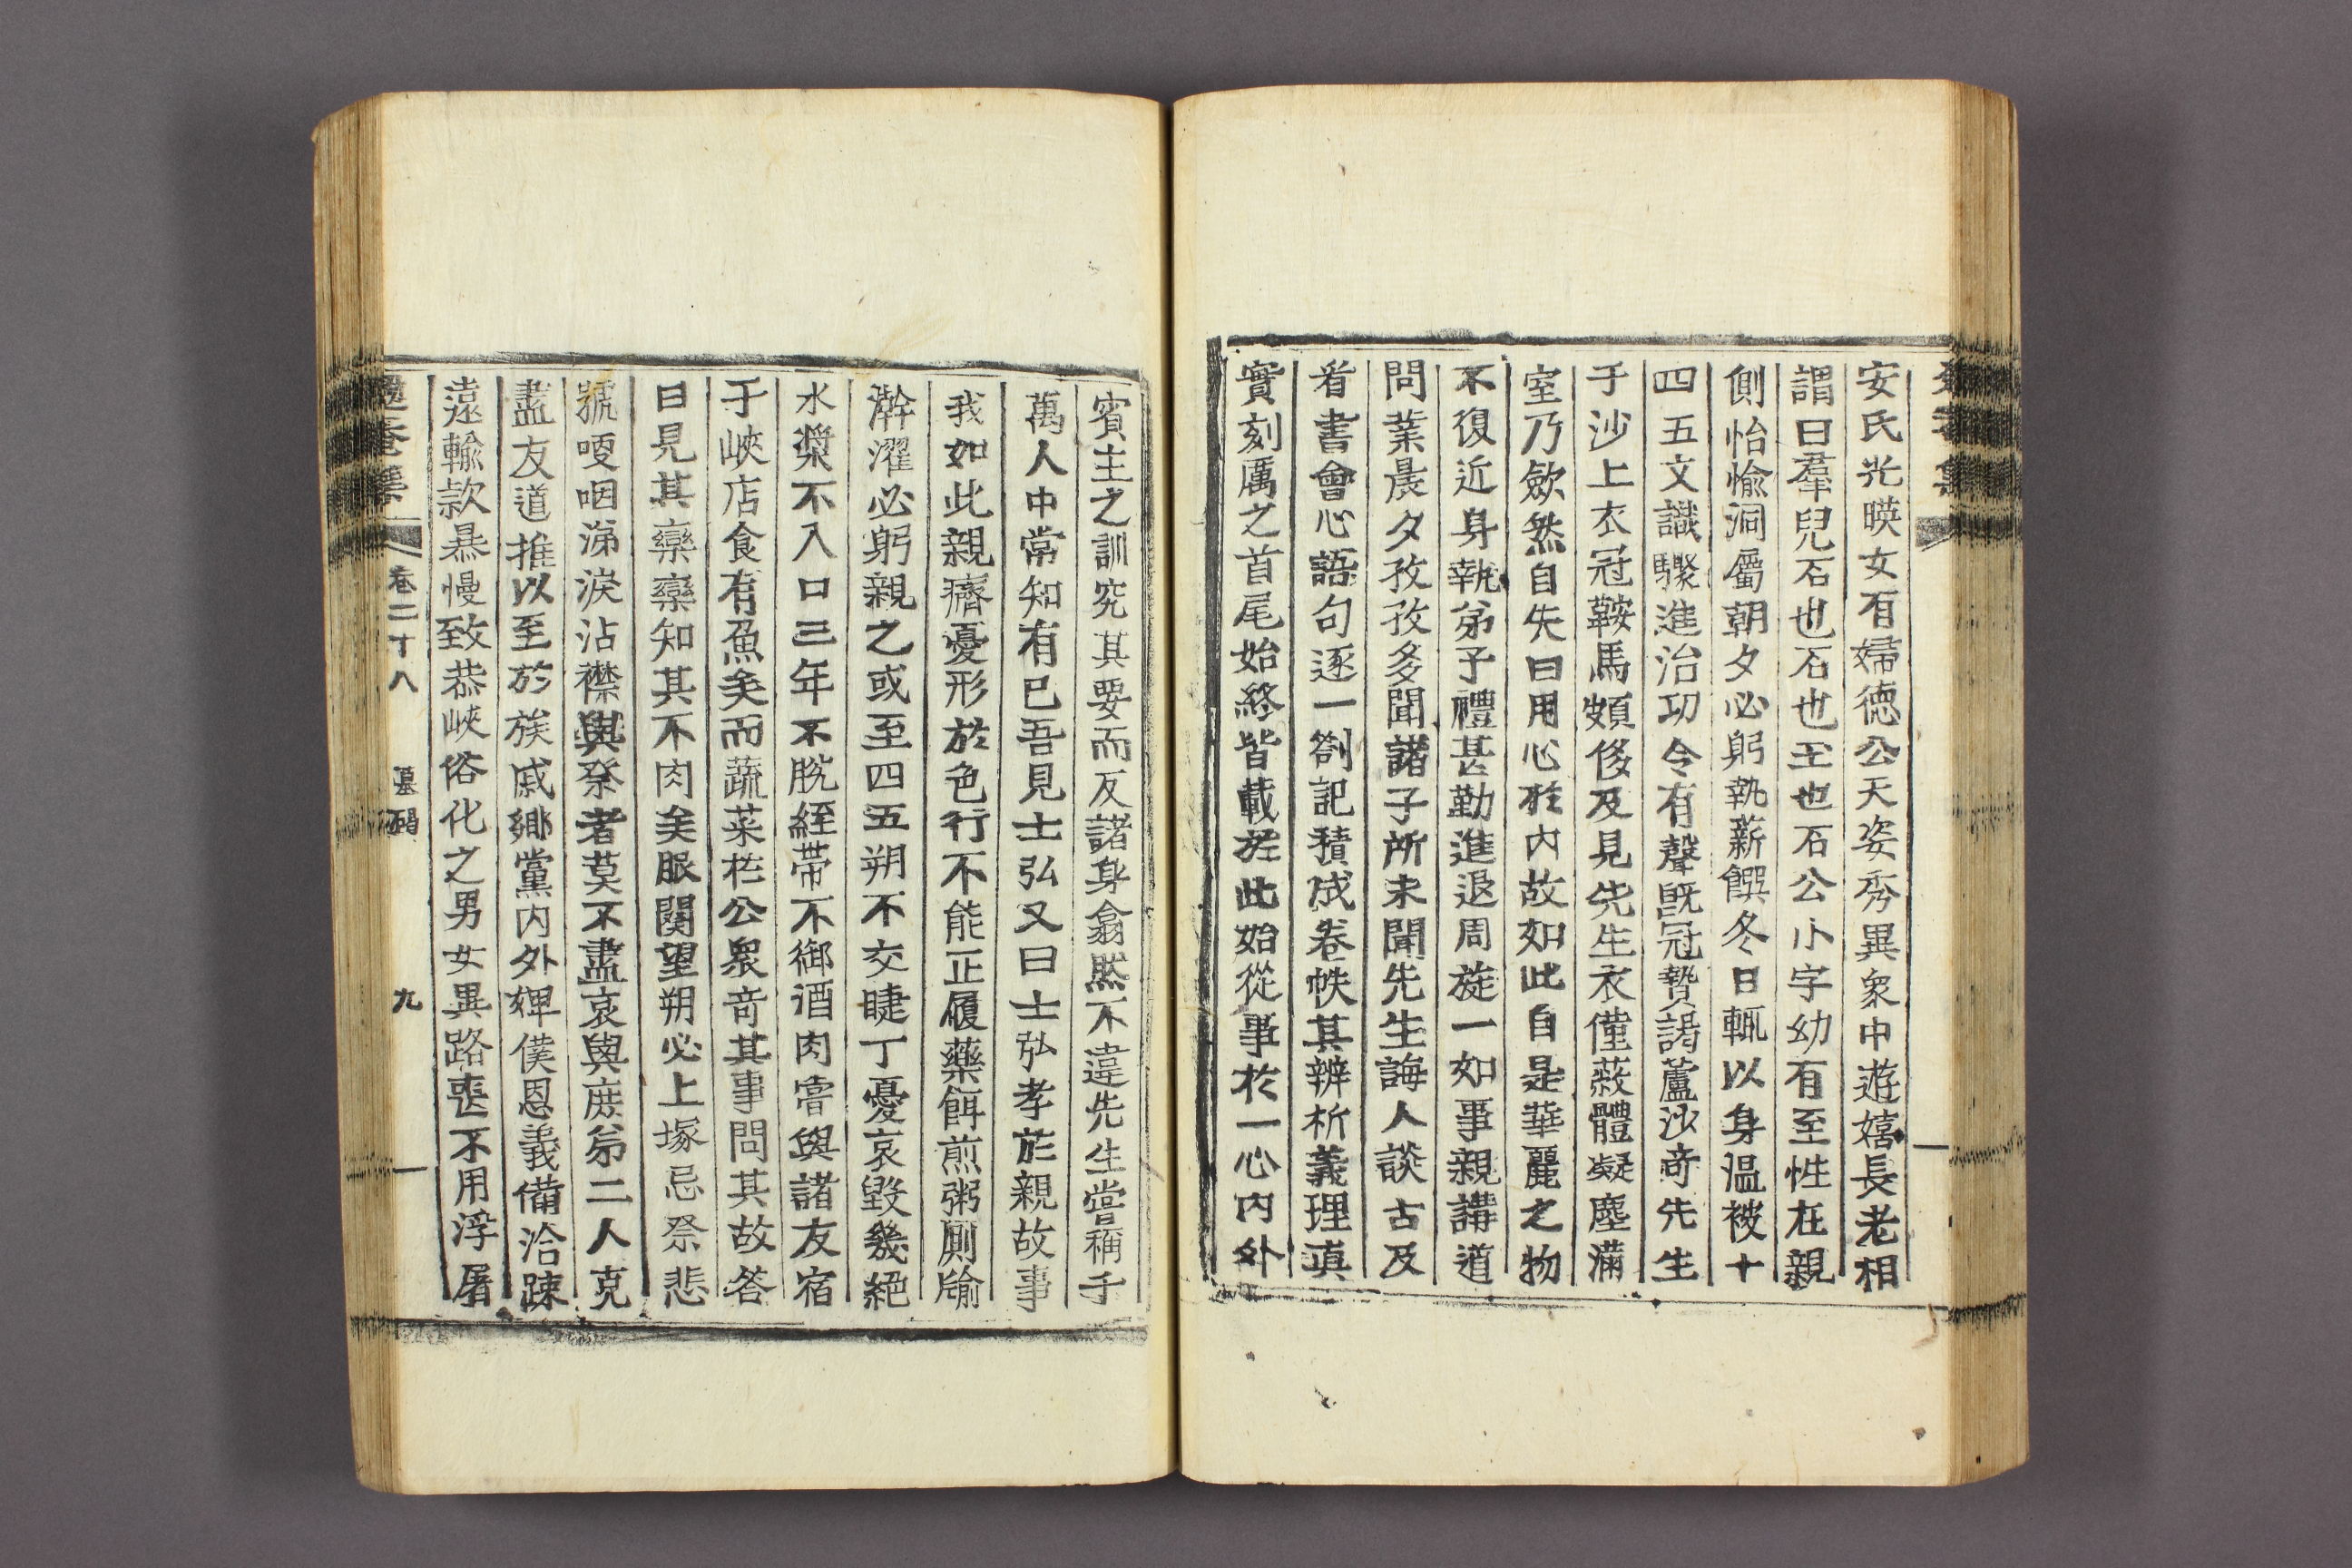 安氏光暎女有婦德公天姿秀異衆中遊嬉長老相
謂曰羣兒石也石也玉也石公小字幼有至性在親
側怡愉洞屬朝夕必躬執薪饌冬日輒以身温被十
四五文識驟進治功令有聲旣冠贄謁蘆沙奇先生
于沙上衣冠鞍馬頗侈及見先生衣僅蔽體凝塵滿
室乃歛然自失曰用心於內故如此自是華麗之物
不復近身執弟子禮甚勤進退周旋一如事親講道
問業晨夕孜孜多聞諸子所未聞先生誨人談古及
看書會心語句逐一劄記積成卷帙其辨析義理眞
實刻厲之首尾始終皆載於此始從事於一心內外
賓主之訓究其要而反諸身翕然不違先生嘗稱千
萬人中常知有已吾見士弘又曰士弘孝於親故事
我如此親癠憂形於色行不能正履藥餌煎粥厠牏
澣濯必躬親之或至四五朔不交睫丁憂哀毀幾絕
水漿不入口三年不脫絰帶不御酒肉嘗與諸友宿
于峽店食有魚羙而蔬菜在公衆奇其事問其故答
曰見其欒欒知其不肉矣服闋望朔必上塚忌祭悲
號哽咽涕淚沾襟與祭者莫不盡哀與庶弟二人克
盡友道推以至於族戚鄕黨內外婢僕恩義備洽踈
遠輸款暴慢致恭峽俗化之男女異路喪不用浮屠
卷二十八 墓碣 九